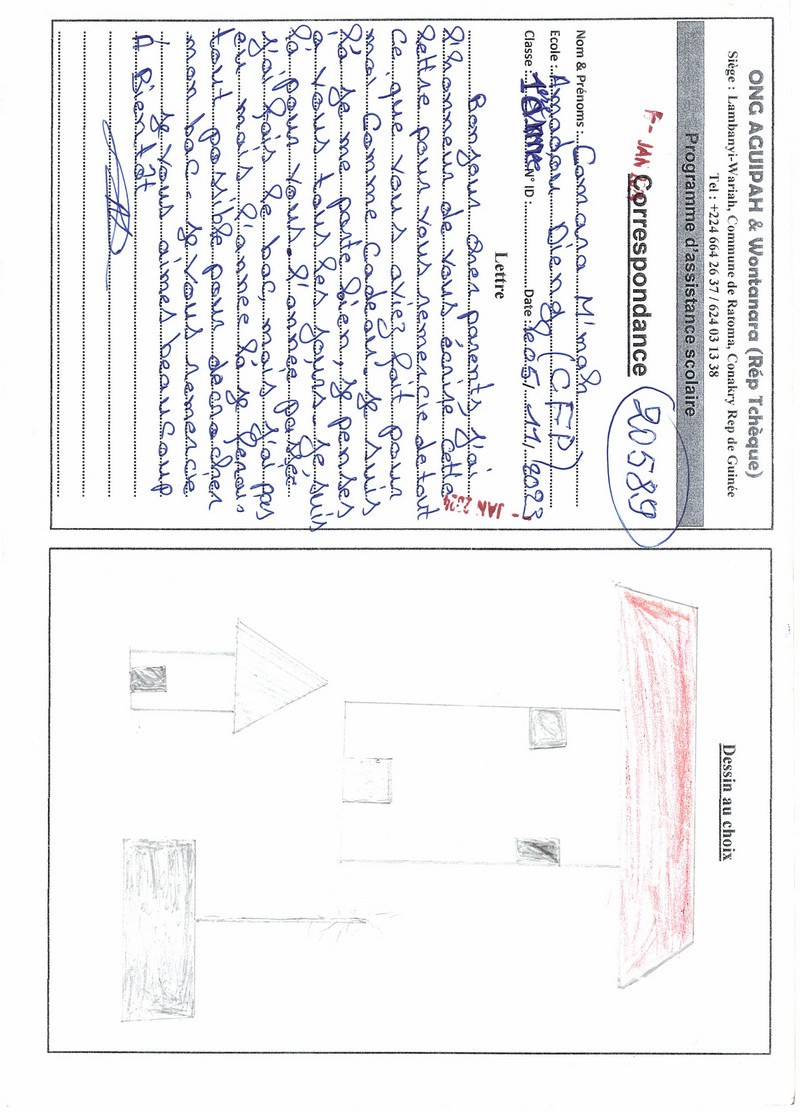 ONG AGUIPAH & Wontanara (Rép Tchèque)
Siège : Lambanyi-Wariah, Commune de Ratoma, Conakry Rep de Guinée
Tel : +224 664 26 37 / 624 03 13 38
Programme d'assistance scolaire
Correspondance
20589
JAN
Nom & Prénoms : Camara M'mah
Ecole : Amadou Dieng (CFP)
Classe : N° ID : Date : le 05/11/2023
- JAN 2024
Lettre
Bonjour cher parents j'ai
l'honneur de vous écrire cette
lettre pour vous remercie de tout
ce que vous aviez fait pour
moi comme cadeau. je suis
là je me porte bien, je penses
a vous tous les jours. je suis
là pour vous. l'année passée
j'ai fais le bac, mais j'ai pas
eu mais l'année là je ferais
tout possible pour decrocher
mon bac. je vous remercie
je vous aimes beaucoup
A Bientôt
Dessin au choix